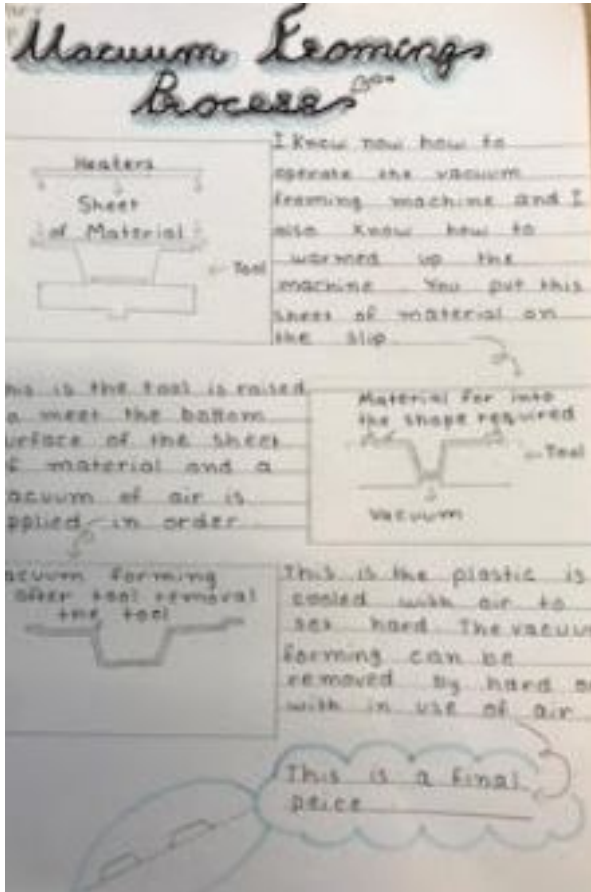 Vacuum Froming
Process
Heaters
Sheet
of Material
Tool
I Know now how to
operate the vacuum
froming machine and I
also know how to
warmed up the
machine. You put this
sheet of material on
the slip
his is the tool is raised
o meet the bottom
urface of the sheet
f material and a
acuum of air is
pplied in order
Material for into
the shape required
Tool
Vacuum
acuum forming
after tool removal
the tool
This is the plastic is
cooled with air to
set hard The vacuum
forming can be
removed by hard o
with in use of air
This is a final
peice